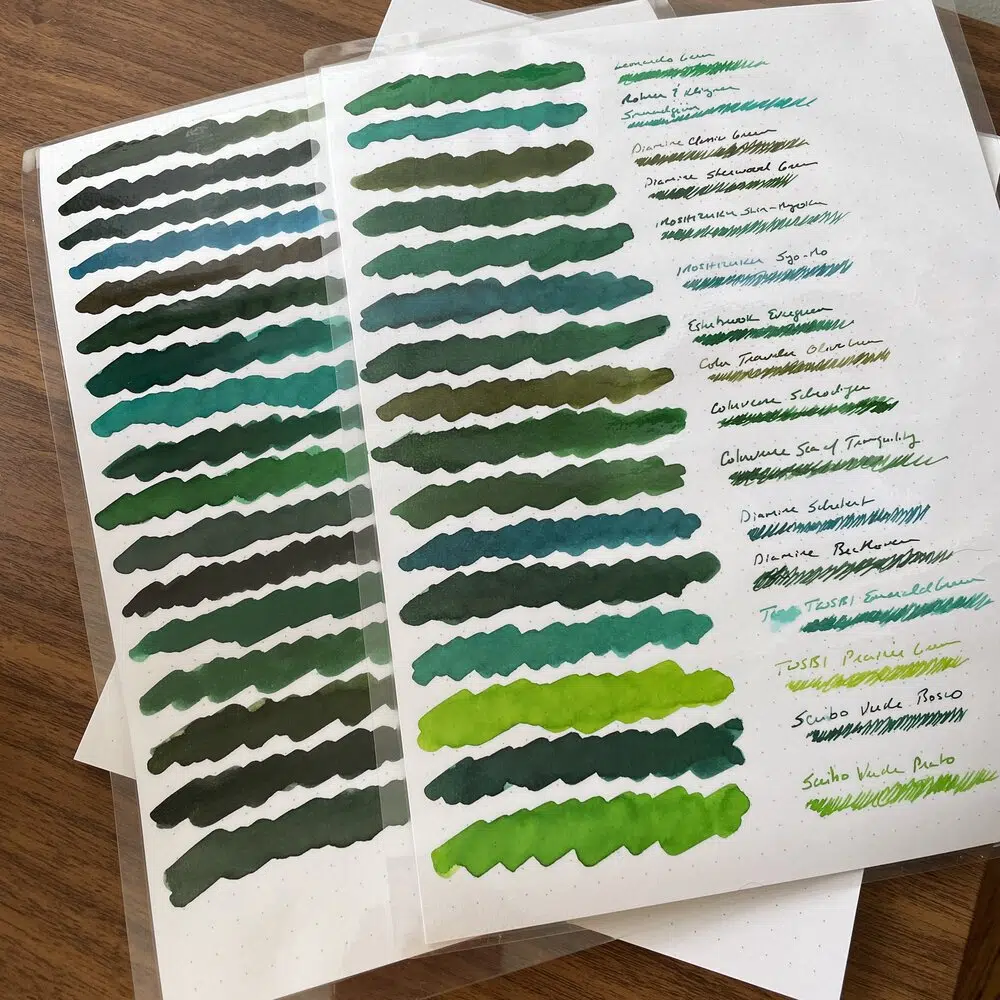 Leonardo Green
Rohrer & Klingner
Smaragdgrün
Diamine Classic Green
Diamine Sherwood Green
IROSHIZUKU Shin-Ryoku
IROSHIZUKU Syo-Ro
Esterbrook Evergreen
Color Traveler Olive Green
Colorverse Schrodinger
Colorverse Sea of Tranquility
Diamine Schubert
Diamine Beethoven
TWSBI Emerald Green
TWSBI Prairie Green
Scribo Verde Bosco
Scribo Verde Prato